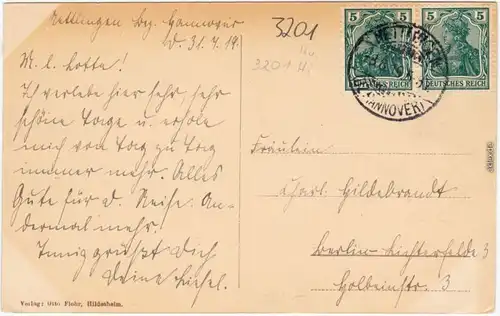 Mettlingen Bez. Hannover
D. 31.7.19.
M. l. Lotte!
Ich verlebe hier sehr, sehr
schöne Tage u. erhole
mich von Tag zu Tag
immer mehr. Alles
Gute für d. Reise. An-
dermal mehr.
Innig grüßt Dich
Deine Liesel.
Verlag: Otto Flohr, Hildesheim.
3201
3201
5 5 5 5
DEUTSCHES REICH DEUTSCHES REICH
HANNOVER
Fräulein
Charl. Hildebrandt
Berlin-Lichterfelde 3
Holbeinstr. 3